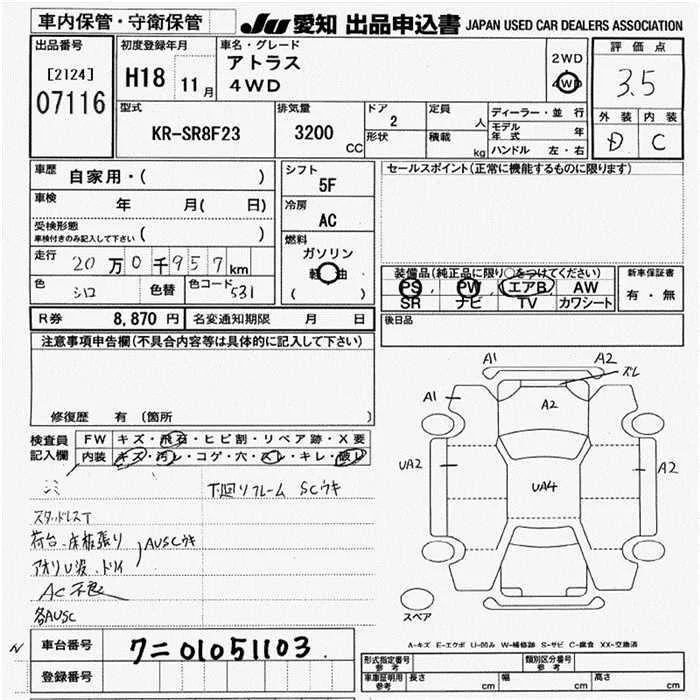 車内保管・守衛保管
JU 愛知 出品申込書 JAPAN USED CAR DEALERS ASSOCIATION
出品番号
[2124]
07116
初度登録年月
H18 11月
車名・グレード
アトラス
4WD
2WD
4WD
評価点
3.5
外装 内装
D C
型式
KR-SR8F23
排気量
3200 CC
ドア
2
形状
定員
人
積載
kg
ディーラー・並行
モデル年式 年
ハンドル 左・右
車歴 自家用・( )
車検 年 月( 日)
受検形態
車検付きのみ記入して下さい ( )
走行 20万0千957km
色 シロ 色替 色コード 531
シフト
5F
冷房
AC
燃料
ガソリン
軽油
( )
セールスポイント(正常に機能するものに限ります)
装備品(純正品に限り○をつけてください)
PS PW エアB AW
SR ナビ TV カワシート
新車保証書
有・無
後日品
R券 8,870円 名変通知期限 月 日
注意事項申告欄(不具合内容等は具体的に記入して下さい)
修復歴 有 (箇所 )
検査員記入欄
FW キズ・飛石・ヒビ割・リペア跡・X要
内装 キズ・汚レ・コゲ・穴・スレ・キレ・破レ
下回リフレーム SCウキ
スタッドレスT
荷台、床板張り
AUSCウキ
アオリU波、トソイ
AC不良
各AUSC
A1 A2
ズレ
A1
A2
UA2
UA4
A2
スペア
A-キズ E-エクボ U-凹み W-補修跡 S-サビ C-腐食 XX-交換済
N
車台番号 7ニ01051103
登録番号
形式指定番号 参考
類別区分番号 参考
車庫証明用 参考
長さ cm 幅 cm 高さ cm